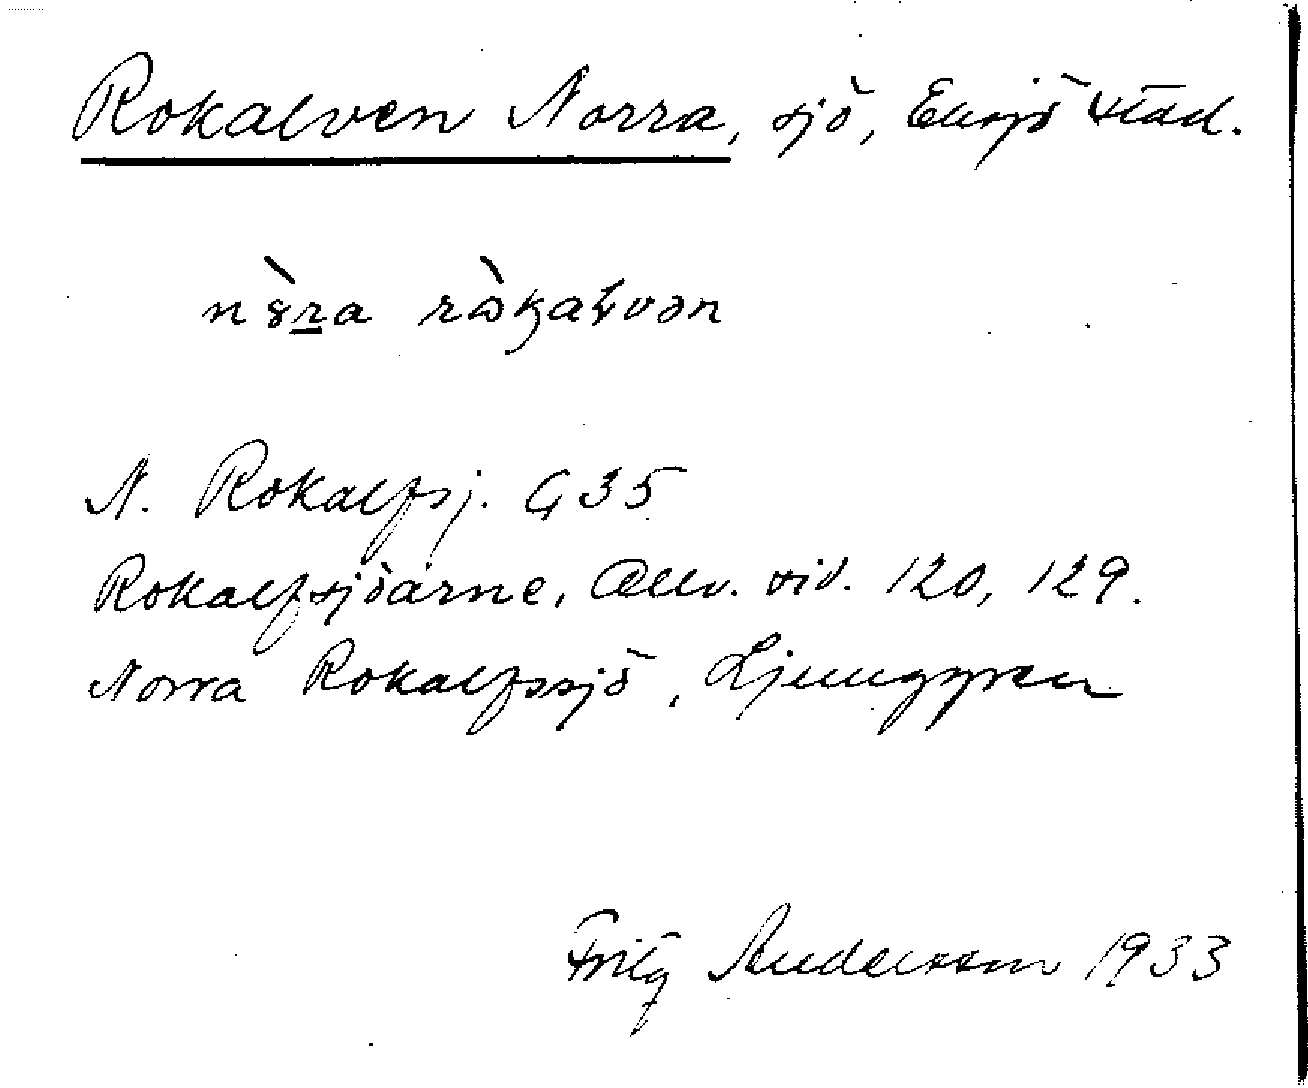 Rokalven Norra, sjö, Eksjö stad.
nè̠ra ròkaɫvən
N. Rokalfsj. G 35
Rokalfsjöarne, Allv. sid. 120, 129.
Norra Rokalfssjö, Ljunggren
Fritz Andersson 1933